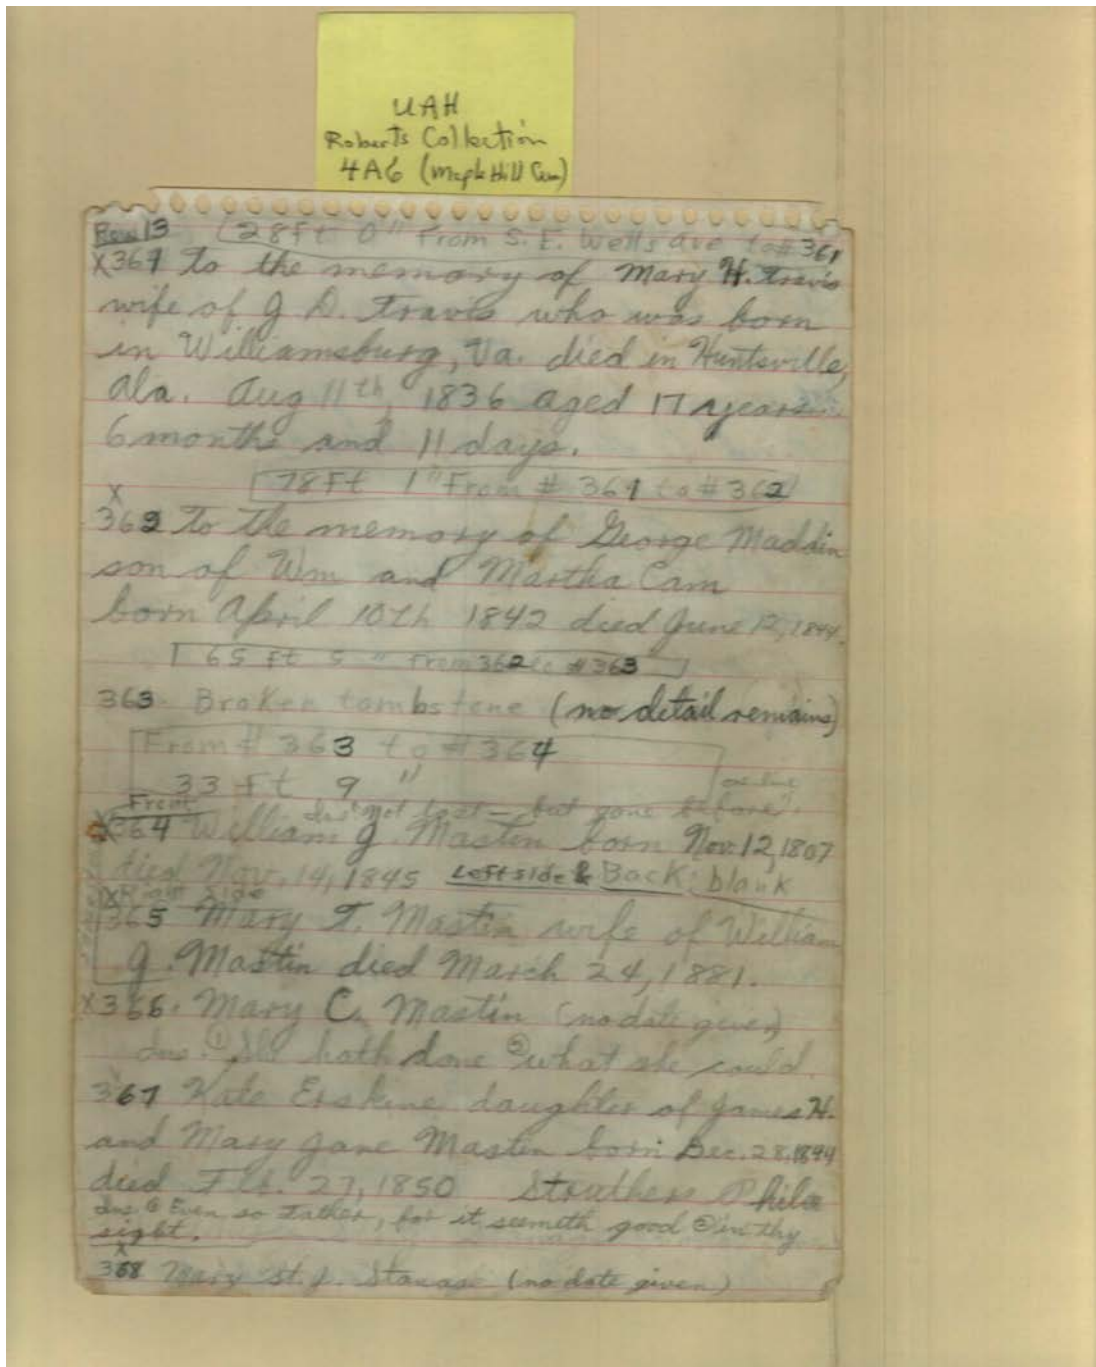 UAH
Roberts Collection
4A6 (Maple Hill Cem)
Row 13 28 Ft 0" From S. E. Wells Ave to # 361
X361 To the memory of Mary H. Travis
wife of J D. Travis who was born
in Williamsburg, Va. died in Huntsville,
Ala. Aug 11th, 1836 aged 17 years
6 months and 11 days.
78 Ft 1" From # 361 to # 362
X
362 To the memory of George Maddin
son of Wm and Martha Cam
born April 10th 1842 died June 12, 1844.
65 ft 5 " From 362 to # 363
363. Broken tombstone (no detail remains)
From # 363 to # 364
33 Ft 9 "
Front Ins "Not lost — but gone before".
X364 William J. Mastin born Nov. 12, 1807
died Nov. 14, 1845 Left side & Back blank
X Right Side
365 Mary F. Mastin wife of William
J. Mastin died March 24, 1881.
X366. Mary C. Mastin (no date given)
Ins. ① She hath done ② what she could.
367 Kate Erskine daughter of James H.
and Mary Jane Mastin born Dec. 28, 1844
died Feb. 27, 1850 Struthers Phila
Ins ① Even so Father, for it seemeth good ② in thy
sight.
X
368 Mary St. J. (no date given)